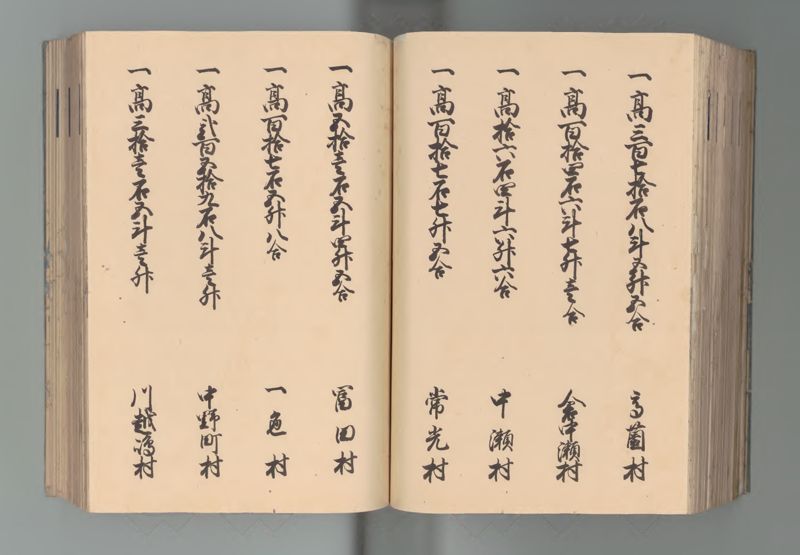 一高三百七拾石八斗五升五合 高薗村
一高百拾四石六斗七升壱合 倉中瀬村
一高拾六石四斗六升六合 中瀬村
一高百拾七石七升五合 常光村
一高五拾壱石五斗四升五合 富田村
一高百拾七石五升八合 一色村
一高弐百五拾九石八斗壱升 中野町村
一高三拾壱石五斗壱升 川越嶋村